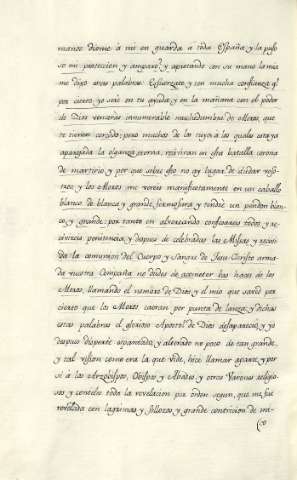 mano diome a mi en guarda a toda España y la puso
so mi proteccion y amparo, y apretando con su mano la mia
me dixo estas palabras. Esfuerzate, y ten mucha confianza qe.
por cierto yo seré en tu ayuda; y en la mañana con el poder
de Dios venceras innumerable muchedumbre de Moros, que
te tienen cercado; pero muchos de los tuyos a los quales estaya
aparejada la olganza eterna, reciviran en esta batalla corona
de martirio y por que sobre esto no ay lugar de dudar voso-
tros y los Moros me vereis manifiestamente en un caballo
blanco de blanca y grande fermosura y tendré un pendon blan-
co, y grande: por tanto en alboreando confesaros todos y re-
civireis penitencia, y despues de celebradas las Missas y recivi-
da la comunion del Cuerpo y Sangre de Jesu Christo arma-
da vuestra Compañia no dudeis de acometer las haces de los
Moros, llamando el nombre de Dios y el mio que savré por
cierto que los Moros caeran por punta de lanza; y dichas
estas palabras el glorioso Apostol de Dios desaparecio; y yo
despues desperté espantado y alterado no poco de tan grande,
y tal vision como era la que vide, hice llamar aparte y por
si a los Arzobispos, Obispos y Abades y otros Varones religio-
sos y conteles toda la revelacion por orden segun, que me fue
revelada con lagrimas y sollozos y grande contricion de mi